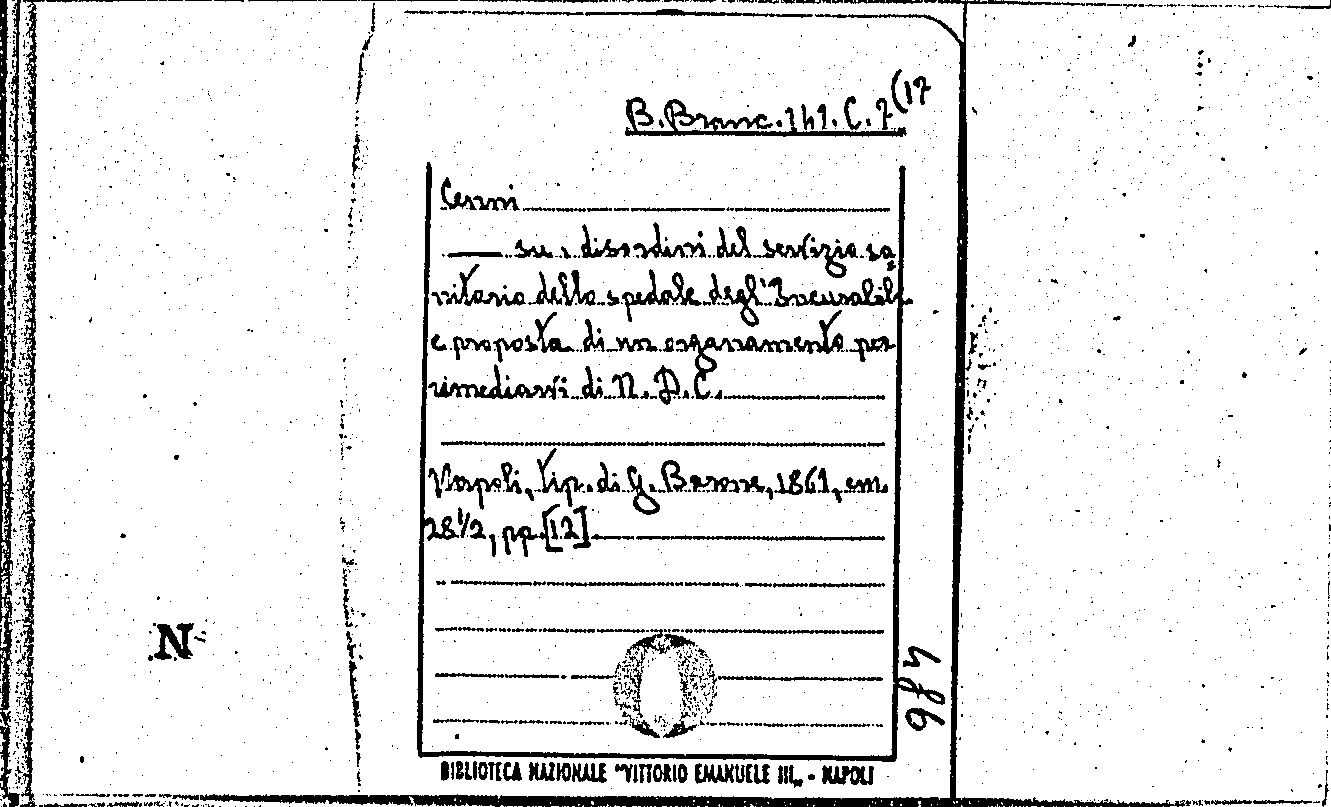 B. Branc. 141. C. 7 (17
Cenni
—— su i disordini del servizio sa
nitario dello spedale degl'Incurabili
e proposta di un organamento per
rimediarvi di N. D. C.
Napoli, tip. di G. Barone, 1861, cm.
28 1/2, pp. [12]
N
BIBLIOTECA NAZIONALE "VITTORIO EMANUELE III„ - NAPOLI